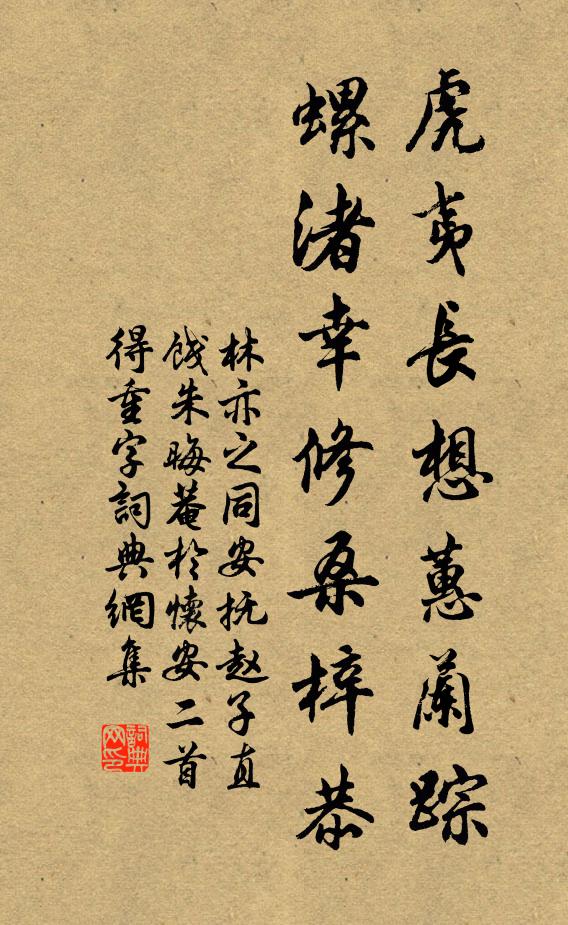 虎夷長想蕙蘭踪
螺渚幸修桑梓恭
林亦之同安抚趙子直
餞朱晦菴於懷安二首
得重字詞典網集
詞典
网印